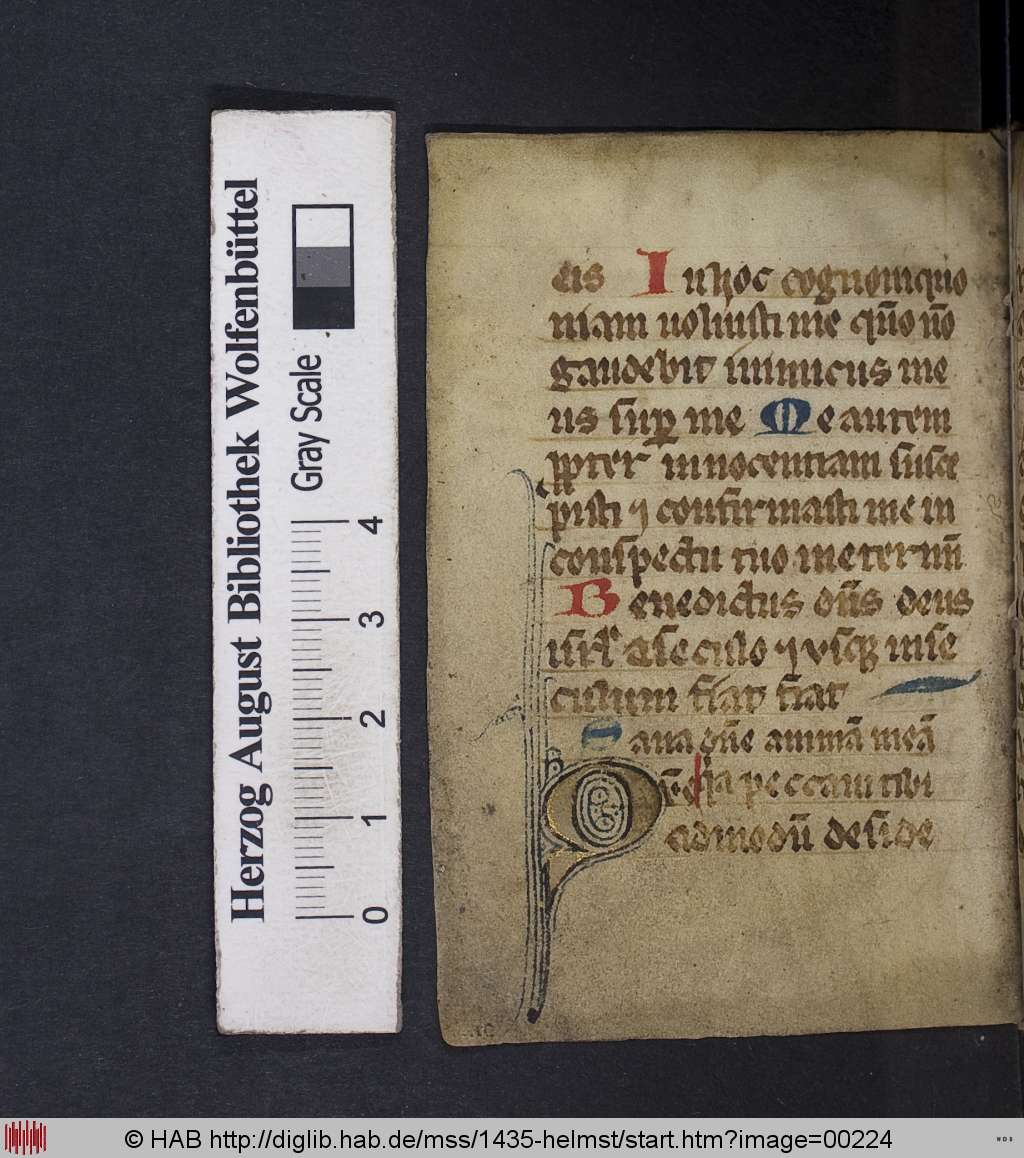 Herzog August Bibliothek Wolfenbüttel
Gray Scale
0 1 2 3 4
eis In hoc cognoui quo
niam uoluisti me qm̄ nō
gaudebit inimicus me
us sup̄ me Me autem
ꝓpter innocentiam susce
pisti ⁊ confirmasti me in
conspectu tuo in eternū
Benedictus dn̄s deus
isrl̄ a seculo ⁊ vsq̢ in se
culum fiat fiat
Sana dn̄e animā meā
q̄a peccaui tibi
Q admodū deside
© HAB http://diglib.hab.de/mss/1435-helmst/start.htm?image=00224